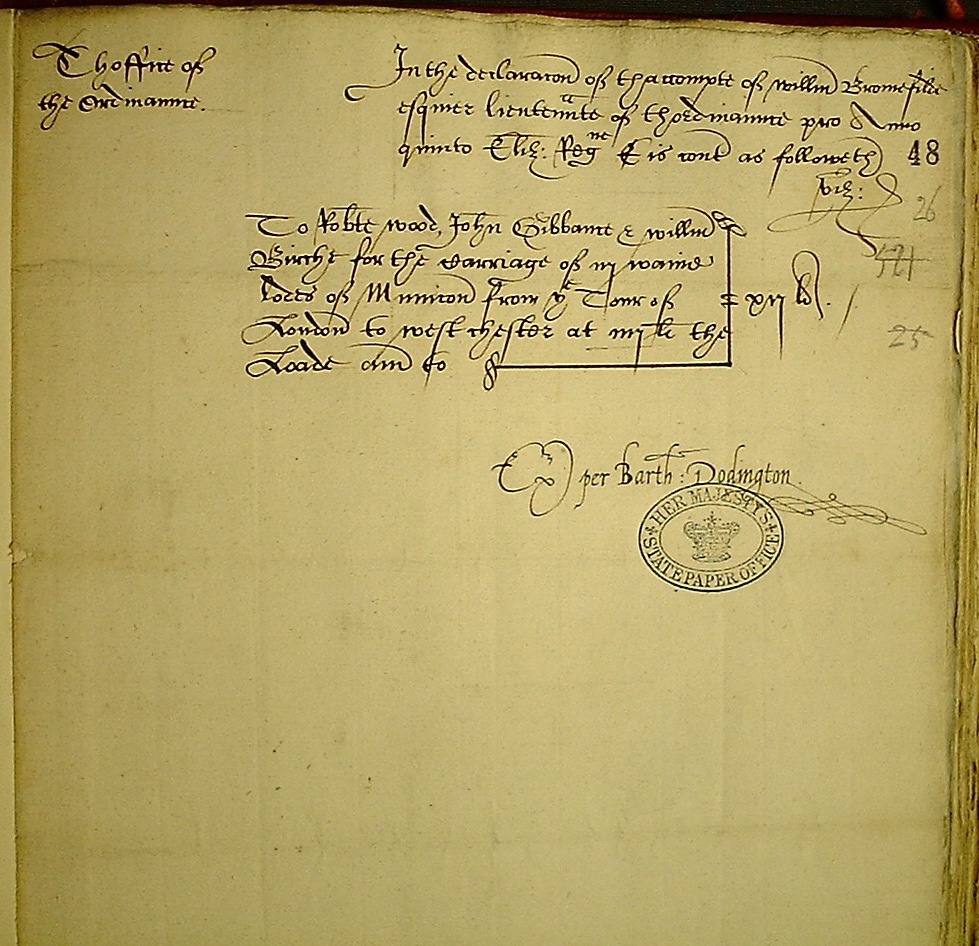 Thoffice of
the Ordinaunce.
In the declaracon of thaccompte of Willm Bromefilde
esquier lieutennte of thordinaunce pro Anno
quinto Eliz: Regne &c is cont as followeth
48
viz:
26
521
To Robte Wood, John Gibbance & Willm
Birche for the Carriage of iij waine
lodes of Municon from ye Tour of
London to West chester at iiij li the
Loade am to
xij li.
25
Ex per Barth: Dodington.
HER MAJESTY'S
STATE PAPER OFFICE